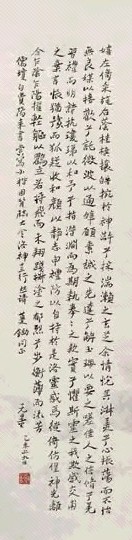 嬉左倚采旄右蔭桂旗攘皓腕於神滸兮采湍瀨之玄芝余情悅其淑美兮心振蕩而不怡
無良媒以接歡兮託微波以通辭願素誠之先達兮解玉珮以要之嗟佳人之信脩兮羌
習禮而明詩抗瓊珶以和予兮指潛淵而為期執拳拳之款實兮懼斯靈之我欺感交甫
之棄言悵猶豫而狐疑收和顏以靜志兮申禮防以自持於是洛靈感焉徙倚彷徨神光離
合乍陰乍陽擢輕軀以鶴立若將飛而未翔踐椒塗之郁烈兮步蘅薄而流芳
洛神
同正